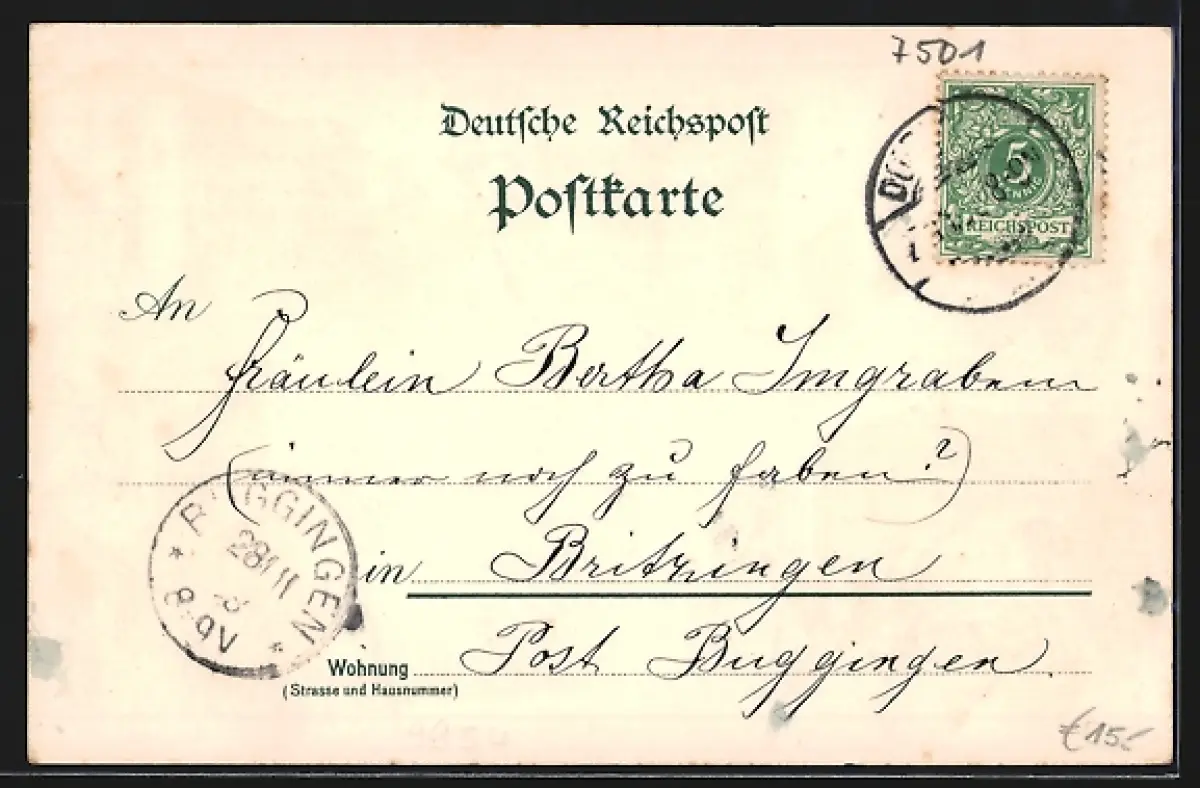 7501
Deutsche Reichspost
Postkarte
5
REICHSPOST
An
Fräulein Bertha Imgraben
(immer noch zu haben?)
in Britzingen
BUGGINGEN
28 11
8-9V
Post Buggingen
Wohnung
(Strasse und Hausnummer)
€15.-